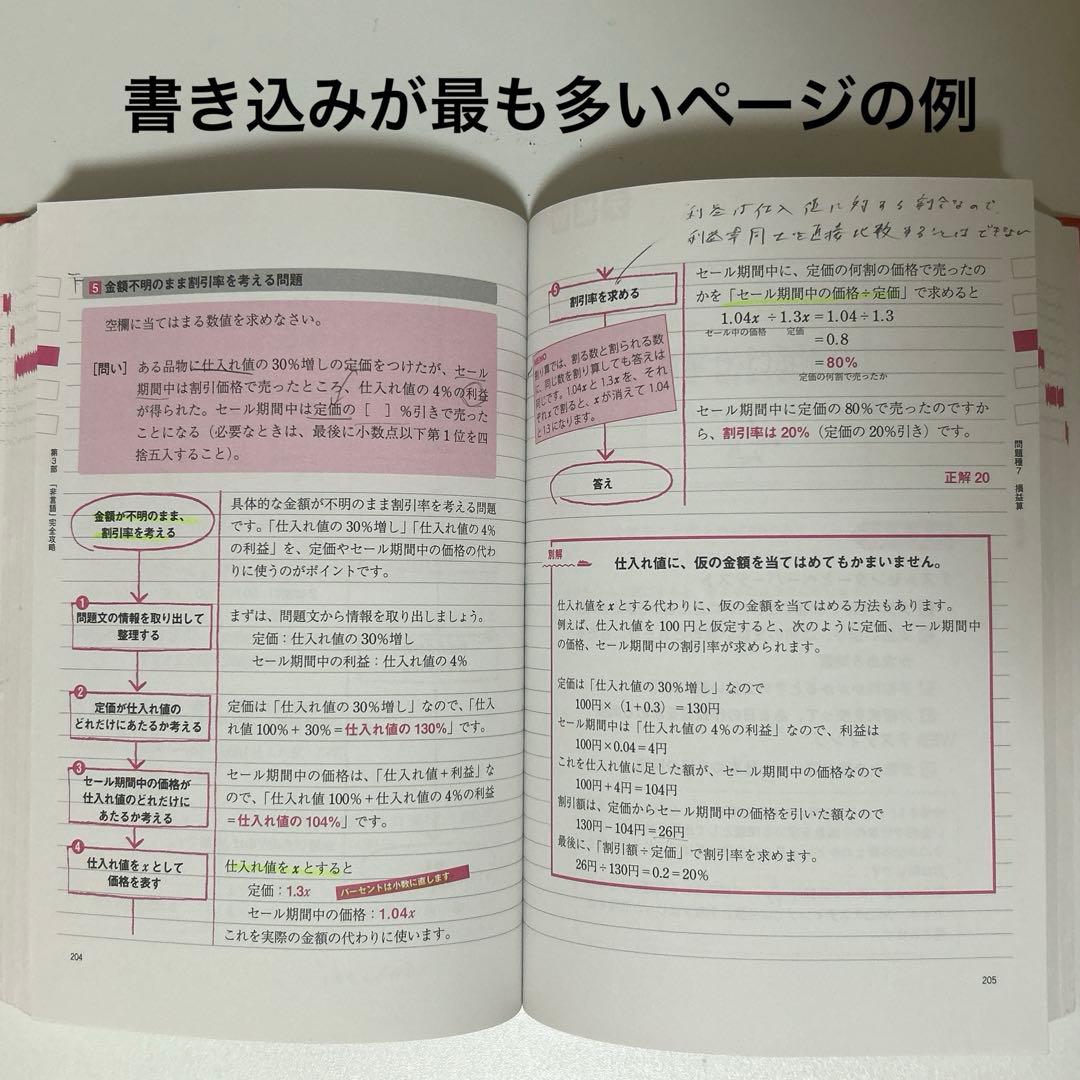 書き込みが最も多いページの例
5 金額不明のまま割引率を考える問題
空欄に当てはまる数値を求めなさい。
［問い］ ある品物に仕入れ値の30％増しの定価をつけたが、セール
期間中は割引価格で売ったところ、仕入れ値の4％の利益
が得られた。セール期間中は定価の［　］％引きで売った
ことになる（必要なときは、最後に小数点以下第1位を四
捨五入すること）。
第3部 「非言語」完全攻略
金額が不明のまま、
割引率を考える
具体的な金額が不明のまま割引率を考える問題
です。「仕入れ値の30％増し」「仕入れ値の4％
の利益」を、定価やセール期間中の価格の代わ
りに使うのがポイントです。
1
問題文の情報を取り出して
整理する
まずは、問題文から情報を取り出しましょう。
定価：仕入れ値の30％増し
セール期間中の利益：仕入れ値の4％
2
定価が仕入れ値の
どれだけにあたるか考える
定価は「仕入れ値の30％増し」なので、「仕入
れ値100％＋30％＝仕入れ値の130％」です。
3
セール期間中の価格が
仕入れ値のどれだけに
あたるか考える
セール期間中の価格は、「仕入れ値＋利益」な
ので、「仕入れ値100％＋仕入れ値の4％の利益
＝仕入れ値の104％」です。
4
仕入れ値をxとして
価格を表す
仕入れ値をxとすると
定価：1.3x
パーセントは小数に直します
セール期間中の価格：1.04x
これを実際の金額の代わりに使います。
204
利益は仕入値に対する割合なので、
利益率同士を直接比較することはできない
5
割引率を求める
MEMO
割り算では、割る数と割られる数
に、同じ数を割り算しても答えは
同じです。1.04xと1.3xを、それ
ぞれxで割ると、xが消えて1.04
と1.3になります。
答え
セール期間中に、定価の何割の価格で売ったの
かを「セール期間中の価格÷定価」で求めると
1.04x÷1.3x＝1.04÷1.3
セール中の価格　定価
＝0.8
＝80％
定価の何割で売ったか
セール期間中に定価の80％で売ったのですか
ら、割引率は20％（定価の20％引き）です。
正解 20
問題種7 損益算
別解
仕入れ値に、仮の金額を当てはめてもかまいません。
仕入れ値をxとする代わりに、仮の金額を当てはめる方法もあります。
例えば、仕入れ値を100円と仮定すると、次のように定価、セール期間中
の価格、セール期間中の割引率が求められます。
定価は「仕入れ値の30％増し」なので
100円×（1＋0.3）＝130円
セール期間中は「仕入れ値の4％の利益」なので、利益は
100円×0.04＝4円
これを仕入れ値に足した額が、セール期間中の価格なので
100円＋4円＝104円
割引額は、定価からセール期間中の価格を引いた額なので
130円－104円＝26円
最後に、「割引額÷定価」で割引率を求めます。
26円÷130円＝0.2＝20％
205